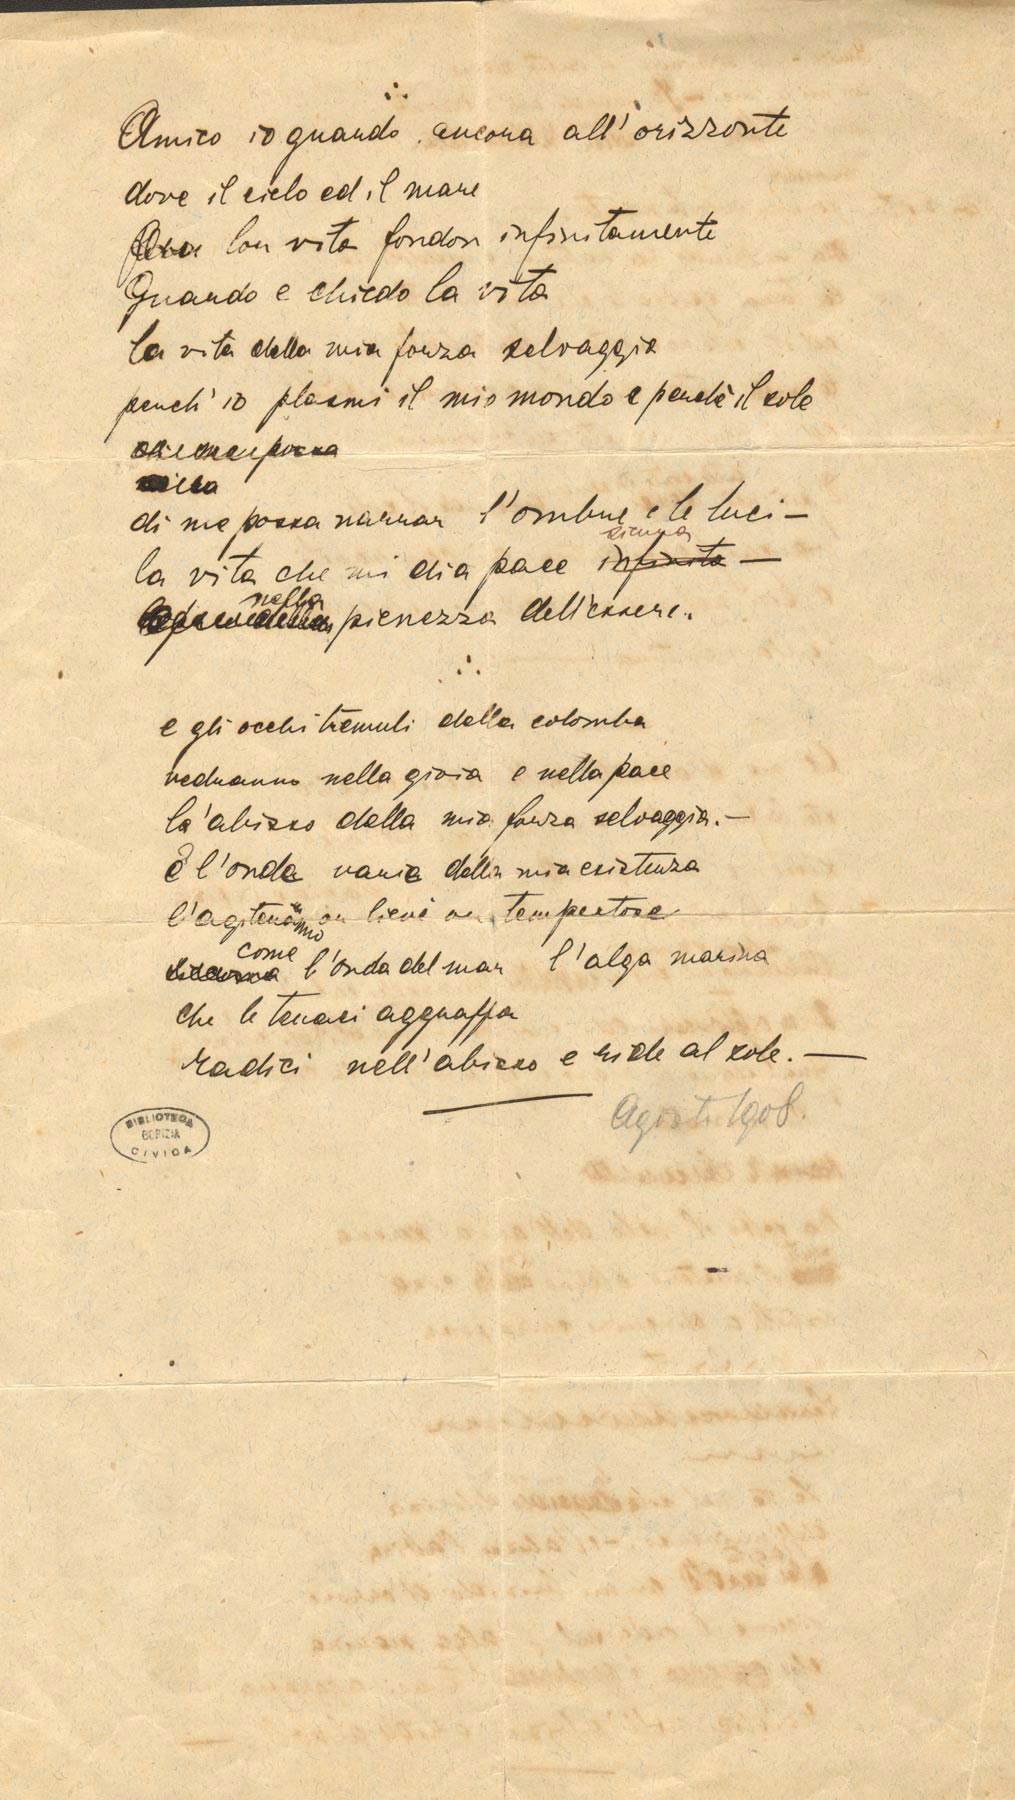 Amico io guardo ancora all'orizzonte
dove il cielo ed il mare
lor vita fondon infinitamente
Guardo e chiedo la vita
la vita della mia forza selvaggia
perch' io plasmi il mio mondo e perchè il sole
di me possa
di me possa narrar l'ombre e le luci –
sicura
la vita che mi dia pace infinita –
nella
della pienezza dell'essere.
e gli occhi tremuli della colomba
vedranno nella gioia e nella pace
l'abisso della mia forza selvaggia. –
E l'onda varia della mia esistenza
l'agiteranno or lieve or tempestose
come
l'onda del mar l'alga marina
che le tenaci aggraffa
radici nell'abisso e ride al sole. —
Agosto 1908.
BIBLIOTECA
GORIZIA
CIVICA